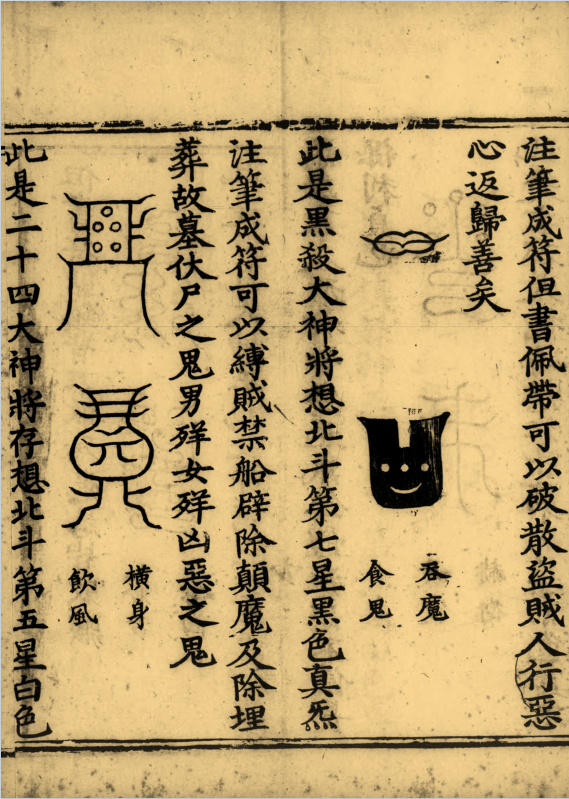 注筆成符但書佩帶可以破散盜賊人行惡
心返歸善矣
吞魔
食鬼
此是黑殺大神將想北斗第七星黑色真炁
注筆成符可以縛賊禁船辟除顛魔及除埋
葬故墓伏尸之鬼男殍女殍凶惡之鬼
橫身
飲風
此是二十四大神將存想北斗第五星白色